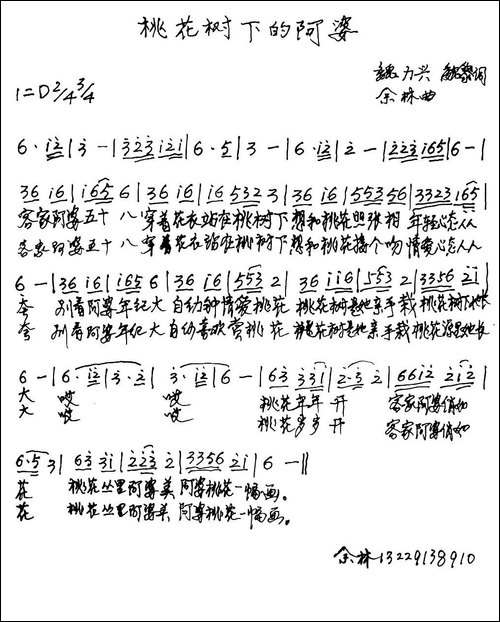 桃花树下的阿婆
魏力兴 魏黎词
1=D2/4 3/4
余林曲
6·i2|3-|323 i2i|6·5|3-|6·i2|2-|223 i65|6-|
36 i6|i65 6|36 i6|i6 532 3|36 i6|553 56|3323 i65|
客家阿婆五十八穿着花衣站在桃树下想和桃花照张相年轻心态人人
客家阿婆五十八穿着花衣站在桃树下想和桃花接个吻情爱心态人人
6-|36 i6|i65 6|36 i6|553 2|36 ii6|553 2|3356 2i|
夸 别看阿婆年纪大自幼钟情爱桃花 桃花树是她亲手栽桃花树下她长
夸 别看阿婆年纪大自幼喜欢赏桃花 桃花树是她亲手栽桃花源里她长
6-|6·i2|3·2|3·i2|6-|63 33i|2·3 2|66i2 2i2|
大 哎 哎 桃花年年开 客家阿婆俏如
大 哎 哎 桃花岁岁开 客家阿婆俏如
6·5 3|63 3i|223 2|3356 2i|6-‖
花 桃花丛里阿婆美 阿婆桃花一幅画。
花 桃花丛里阿婆美 阿婆桃花一幅画。
余林13229138910